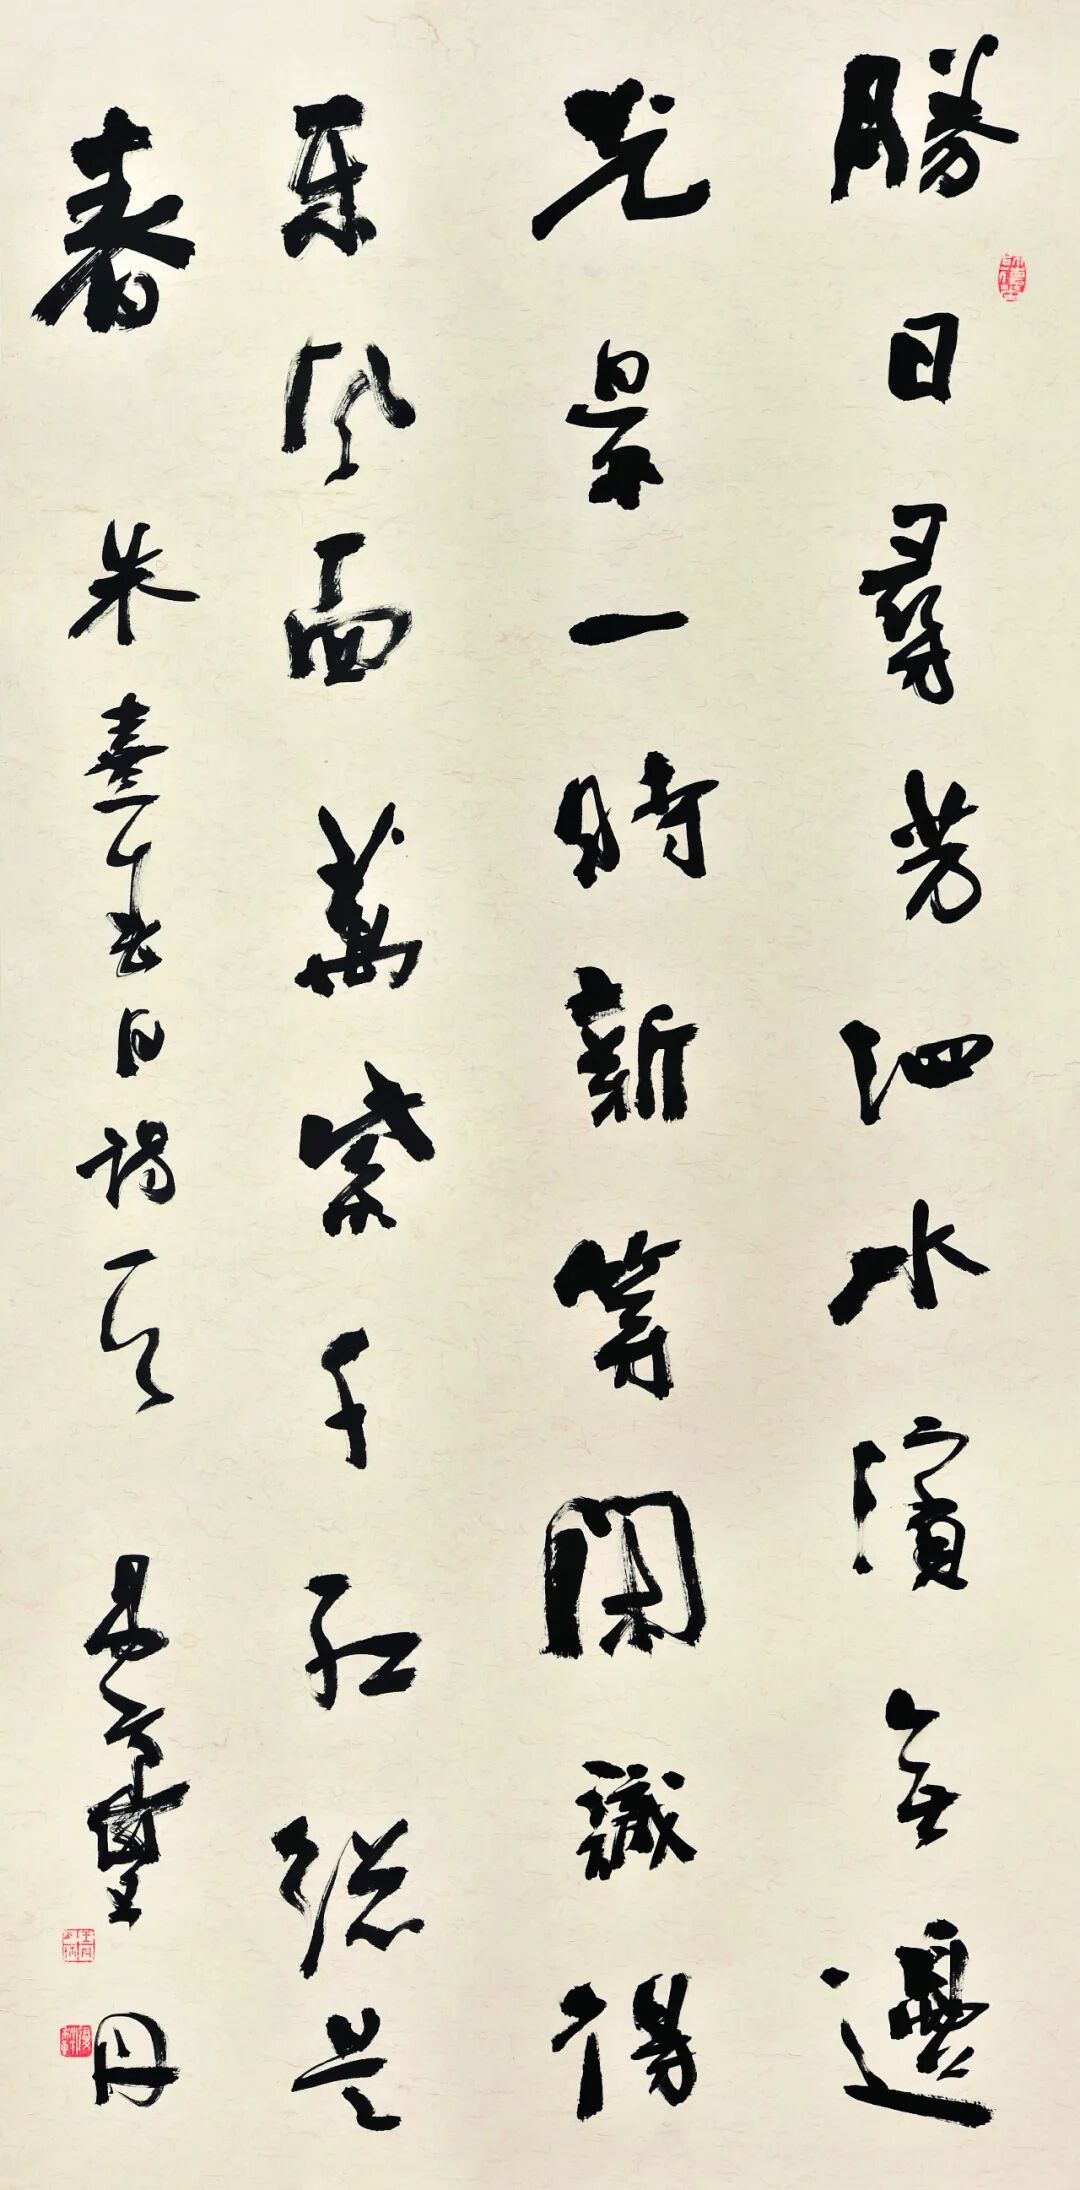 勝日尋芳泗水濱無邊
光景一時新等閑識得
東風面萬紫千紅總是
春 朱熹春日詩一首 丹